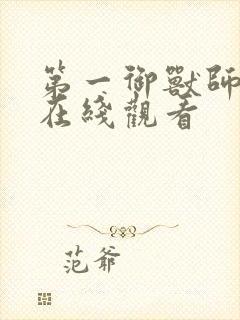 第一御獸師
在綫觀看
范爺